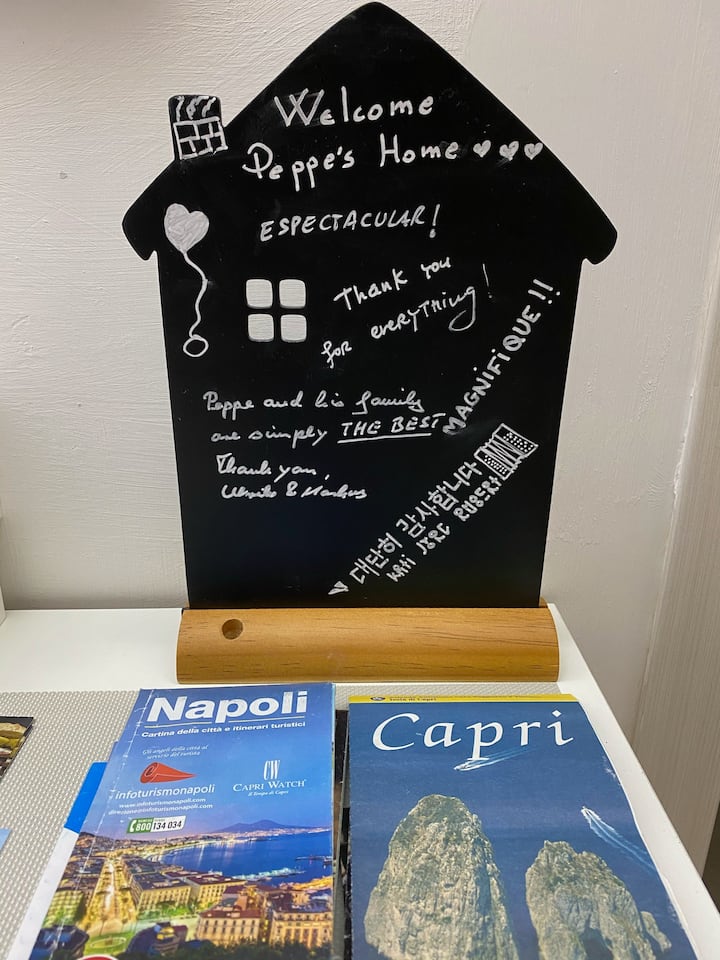 Welcome
Peppe's Home
ESPECTACULAR!
Thank you
for everything!
MAGNIFIQUE!!
Peppe and his family
are simply THE BEST
Thank you,
& Markus
대단히 감사합니다
KATI JØRG RUBERT
Napoli
Cartina della città e itinerari turistici
Gli angeli della città al
servizio del turista
infoturismonapoli
www.infoturismonapoli.com
direzione@infoturismonapoli.com
800 134 034
CW
CAPRI WATCH
Il Tempo di Capri
Isola di Capri
Capri